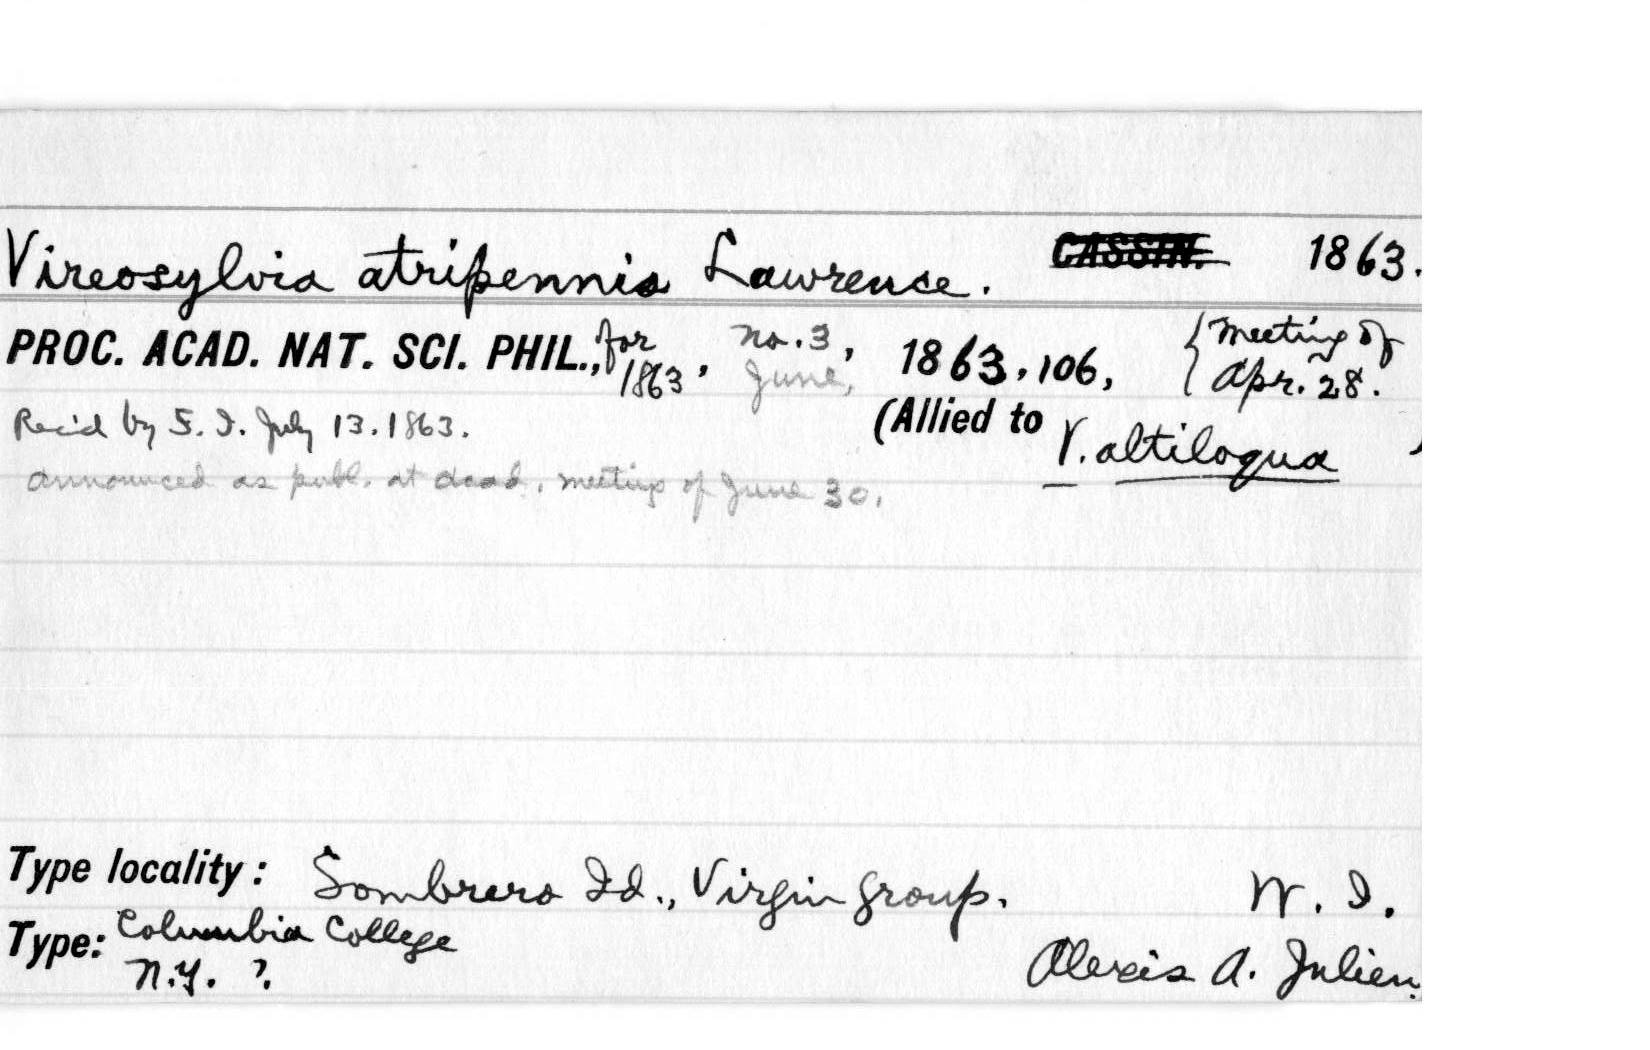 Vireosylvia atripennis Lawrence. CASSIN. 1863.
PROC. ACAD. NAT. SCI. PHIL., for 1863, no. 3, June, 1863, 106, {Meeting of Apr. 28.
Rec'd by S. I. July 13. 1863. (Allied to V. altiloqua
Announced as publ. at Acad. meeting of June 30.
Type locality: Sombrero Id., Virgin group. W. I.
Type: Columbia College
N.Y. ? Alexis A. Julien.